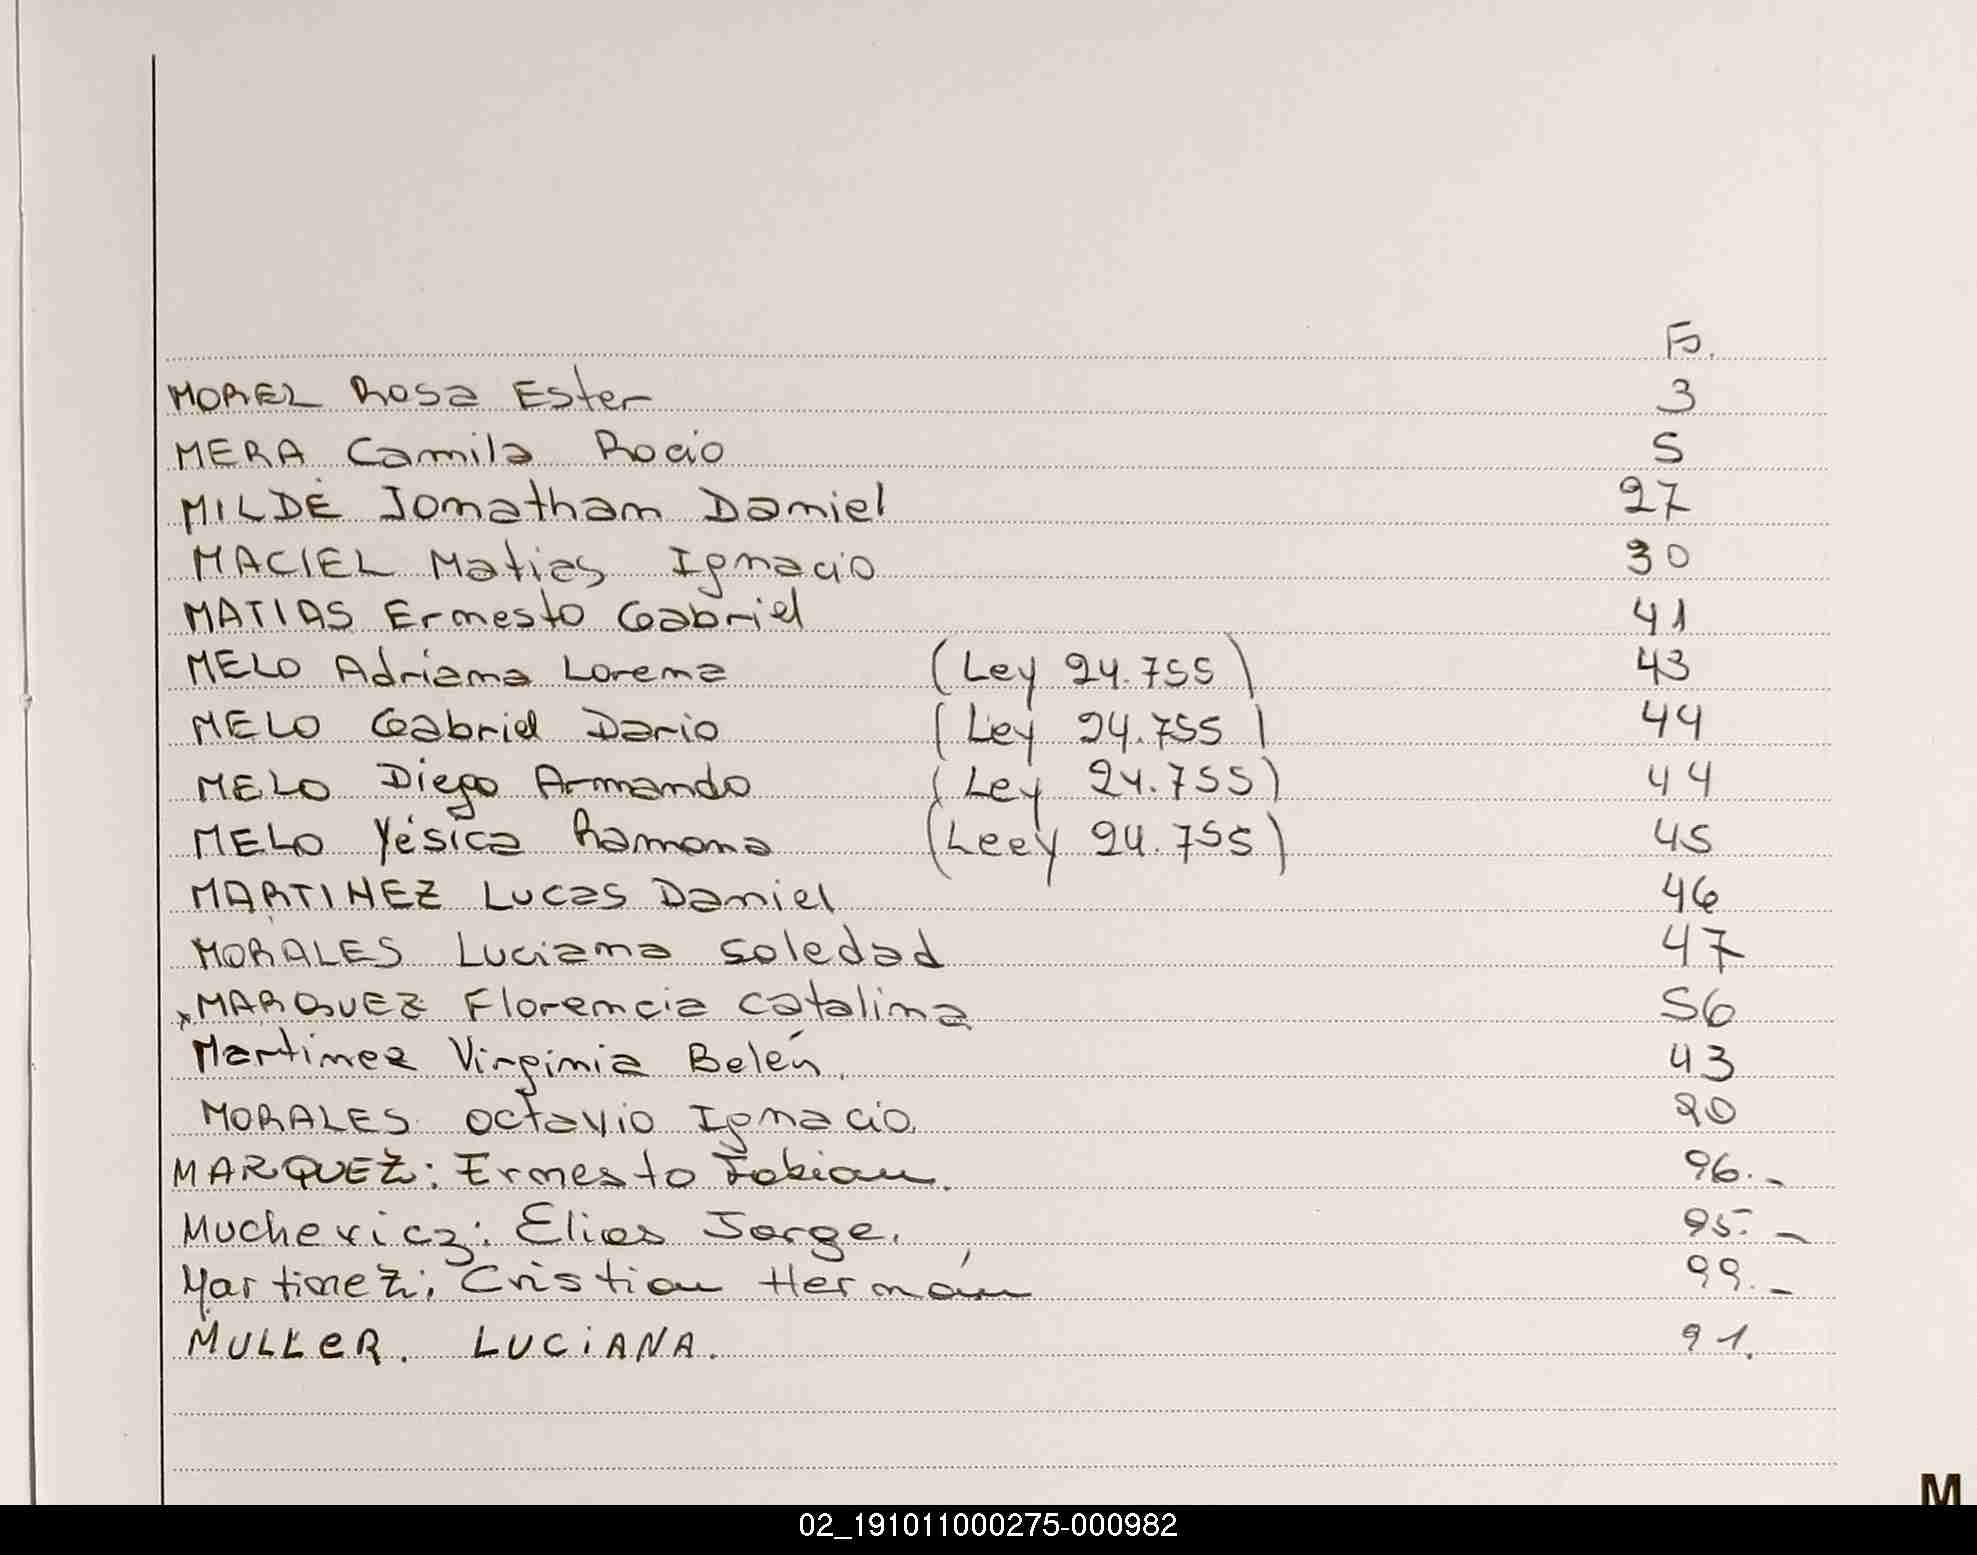 Fo.
MOREL Rosa Ester 3
MERA Camila Rocio 5
MILDE Jonathan Daniel 27
MACIEL Matias Ignacio 30
MATIAS Ernesto Gabriel 41
MELO Adriana Lorena (Ley 24.755) 43
MELO Gabriel Dario (Ley 24.755) 44
MELO Diego Armando (Ley 24.755) 44
MELO Yésica Ramona (Leey 24.755) 45
MARTINEZ Lucas Daniel 46
MORALES Luciana Soledad 47
MARQUEZ Florencia Catalina 56
Martinez Virginia Belén. 43
MORALES Octavio Ignacio. 90
MARQUEZ: Ernesto Fabian. 96.-
Muchevicz: Elias Jorge. 95.-
Martinez: Cristian Hernán 99.-
MULLER. LUCiANA. 91.
M
02_191011000275-000982